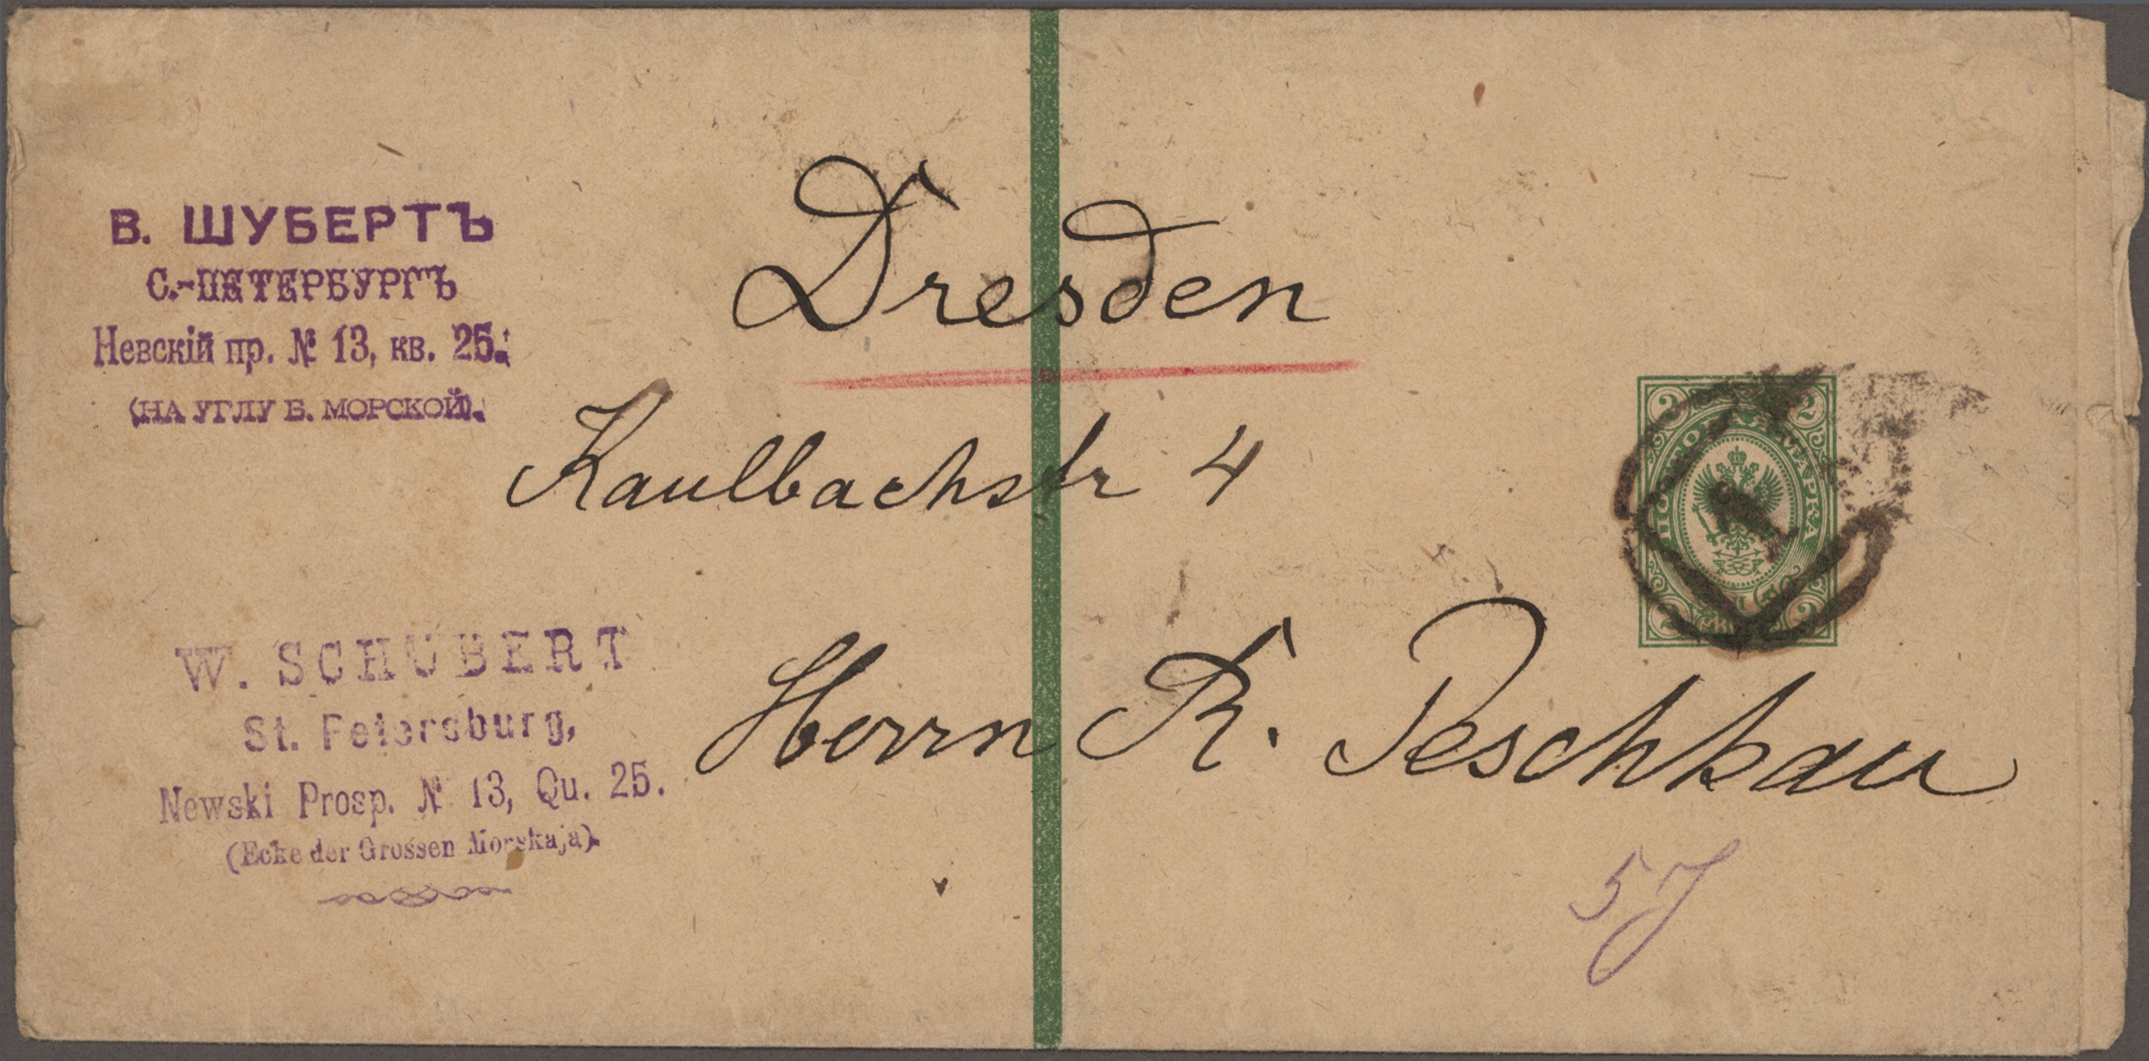 В. ШУБЕРТЪ
С.-ПЕТЕРБУРГЪ
Невскій пр. № 13, кв. 25.
(НА УГЛУ Б. МОРСКОЙ).
Dresden
Kaulbachstr 4
2 2
ПОЧТОВАЯ МАРКА
2 2
1
W. SCHUBERT
St. Petersburg,
Newski Prosp. № 13, Qu. 25.
(Ecke der Grossen Morskaja).
Herrn R. Peschkau
5